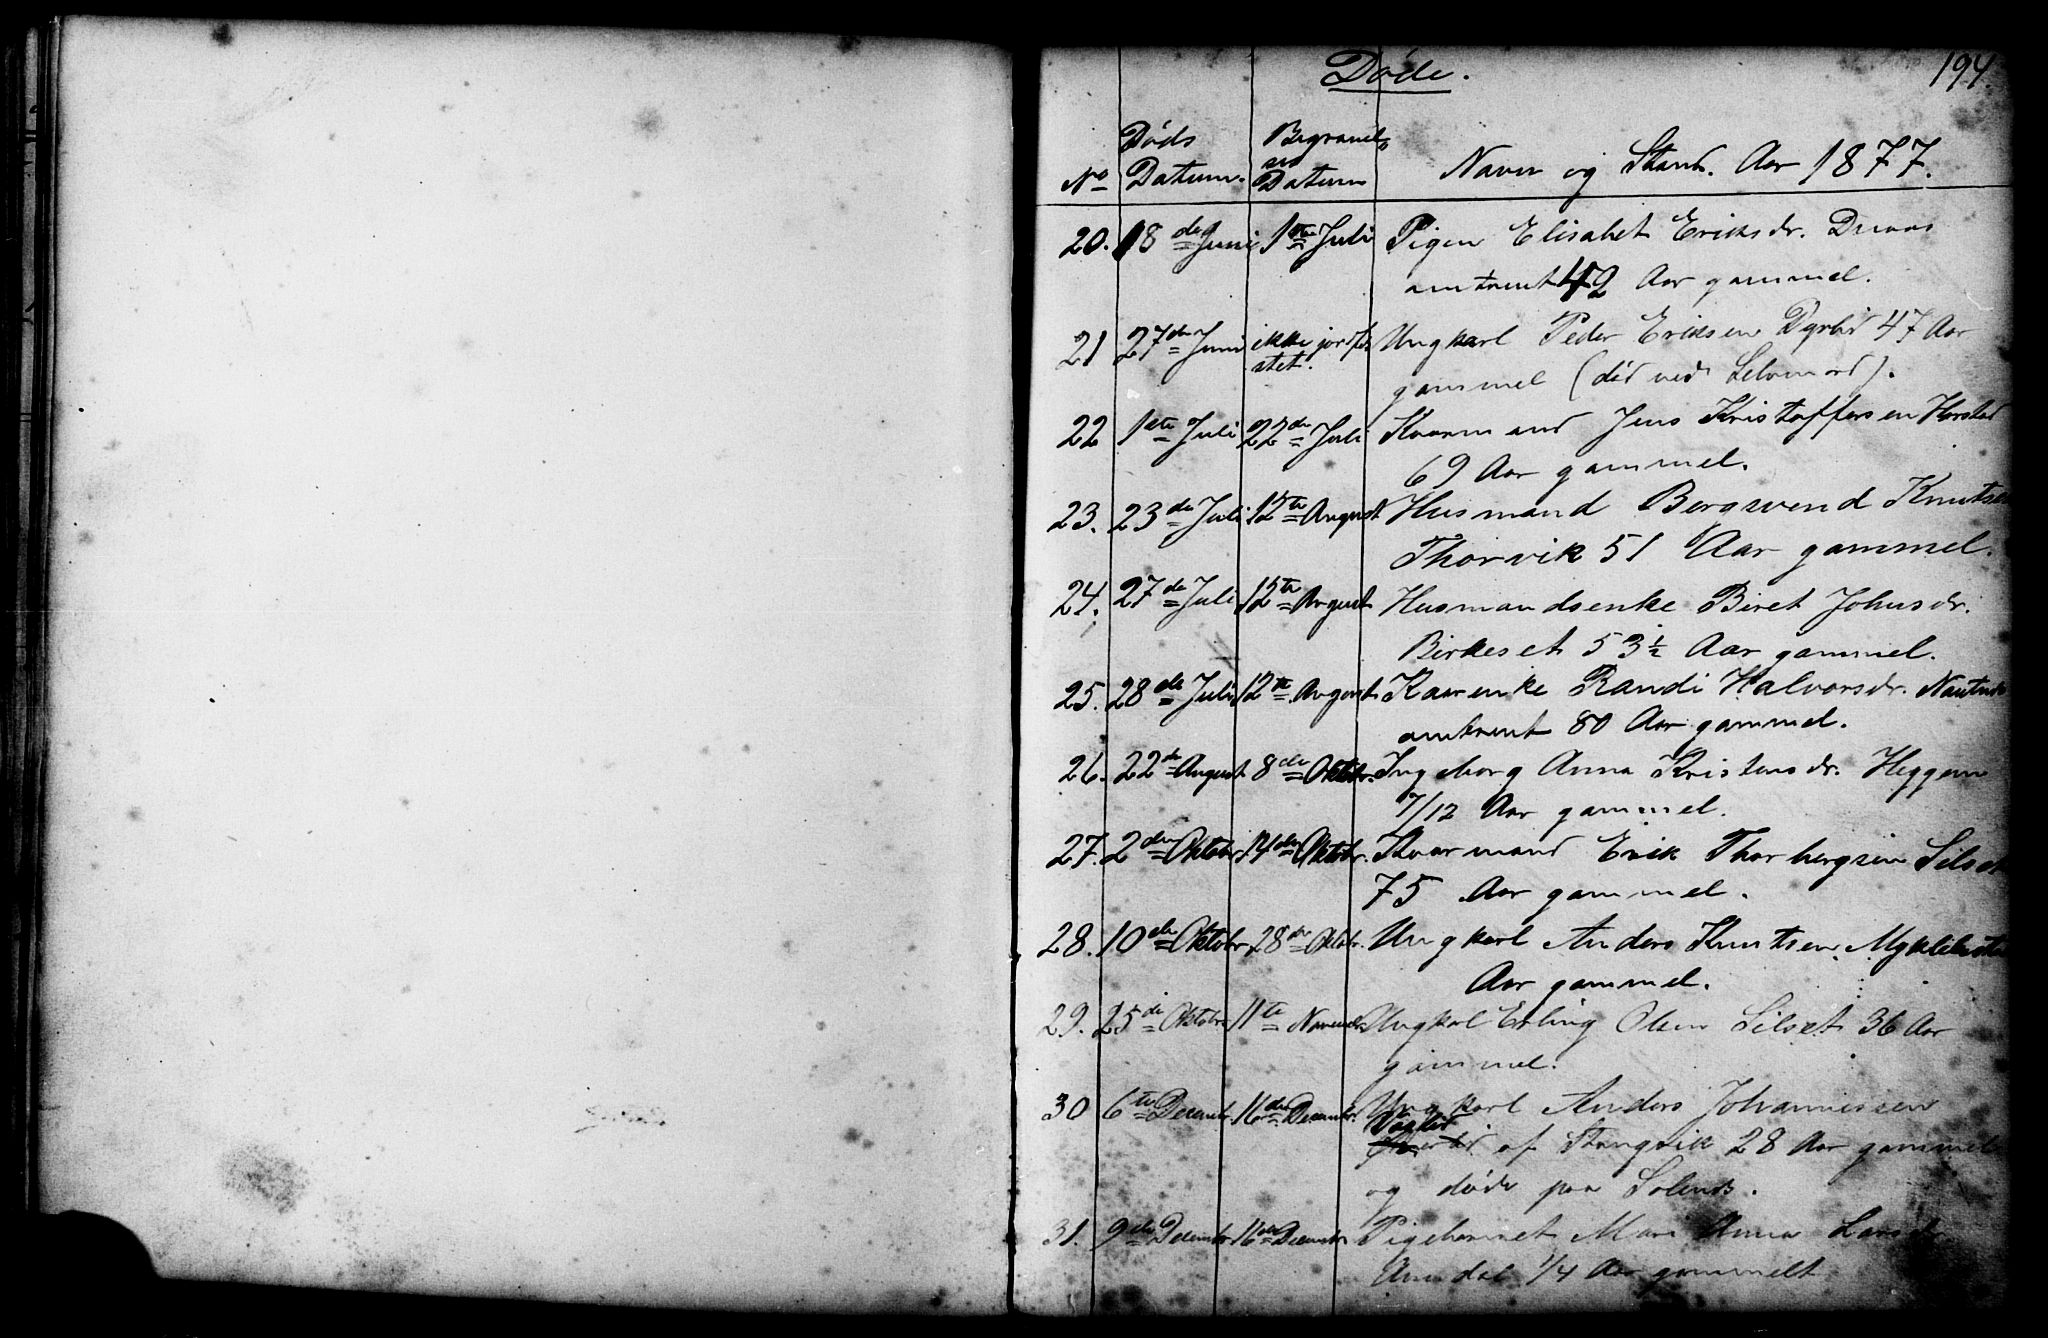 Døde.
194.
No Døds Datum. Begravel- ses Datum Navn og Stand. Aar 1877.
20. 18de Juni 1ste Juli Pigen Elisabet Eriksdr.
omtrent 42 Aar gammel.
21 27de Juni ikke jordfæ- Ungkarl Peder Eriksen 47 Aar
stet. gammel (død ved Selvmord).
22 1ste Juli 22de Juli Kaarmand Jens Kristoffersen Harstad
69 Aar gammel.
23. 23de Juli 12te August Husmand Bergsvend Knutsen
Thorvik 51 Aar gammel.
24. 27de Juli 12te August Husmandsenke Beret Johnsdr.
Birkeset 53½ Aar gammel.
25. 28de Juli 12te August Kaarenke Randi Halvorsdr.
omtrent 80 Aar gammel.
26. 22de August 8de Oktobr. Ingeborg Anna Kristensdr. Heggem
7/12 Aar gammel.
27. 2den Oktobr. 14de Oktobr. Kaarmand Erik Thorbergsen Silset
75 Aar gammel.
28. 10de Oktobr. 28de Oktobr. Ungkarl Anders Knutsen Myklebostad
Aar gammel.
29. 25de Oktobr 11te Novembr Ungkal Erling Olsen Silset 36 Aar
gammel.
30 6te Decembr. 16de Decembr. Ungkarl Anders Johannessen
af Stangvik 28 Aar gammel
og døde paa Solends.
31. 9de Decembr 16de Decembr Pigebarnet Mari Anna Larsdr
1/4 Aar gammelt